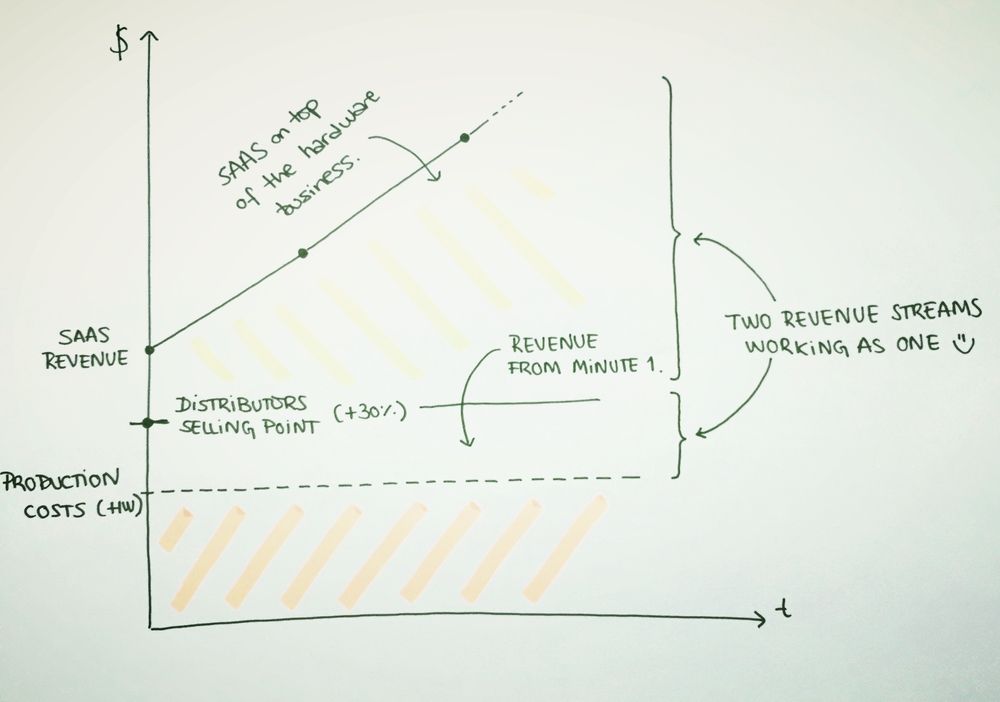 $
SAAS on top
of the hardware
business.
SAAS
REVENUE
REVENUE
FROM MINUTE 1.
TWO REVENUE STREAMS
WORKING AS ONE
DISTRIBUTORS
SELLING POINT (+30%)
PRODUCTION
COSTS (HW)
t